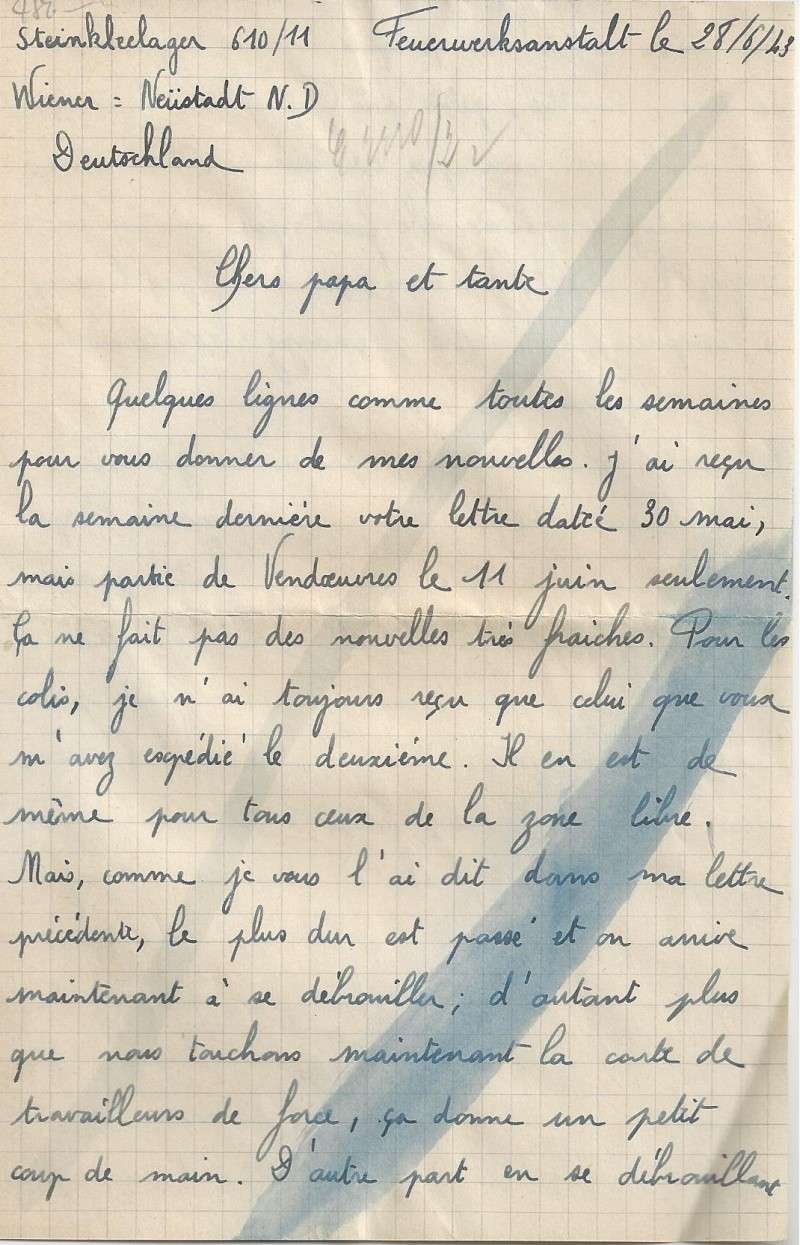 Steinkleelager 610/11 Feuerwerksanstalt le 28/6/43
Wiener = Neüstadt N.D
Deutschland
Chers papa et tante
Quelques lignes comme toutes les semaines
pour vous donner de mes nouvelles. J'ai reçu
la semaine dernière votre lettre datée 30 mai,
mais partie de Vendœuvres le 11 juin seulement.
Ça ne fait pas des nouvelles très fraiches. Pour les
colis, je n'ai toujours reçu que celui que vous
m'avez expédié le deuxième. Il en est de
même pour tous ceux de la zone libre.
Mais, comme je vous l'ai dit dans ma lettre
précédente, le plus dur est passé et on arrive
maintenant à se débrouiller; d'autant plus
que nous touchons maintenant la carte de
travailleurs de force, ça donne un petit
coup de main. D'autre part en se débrouillant